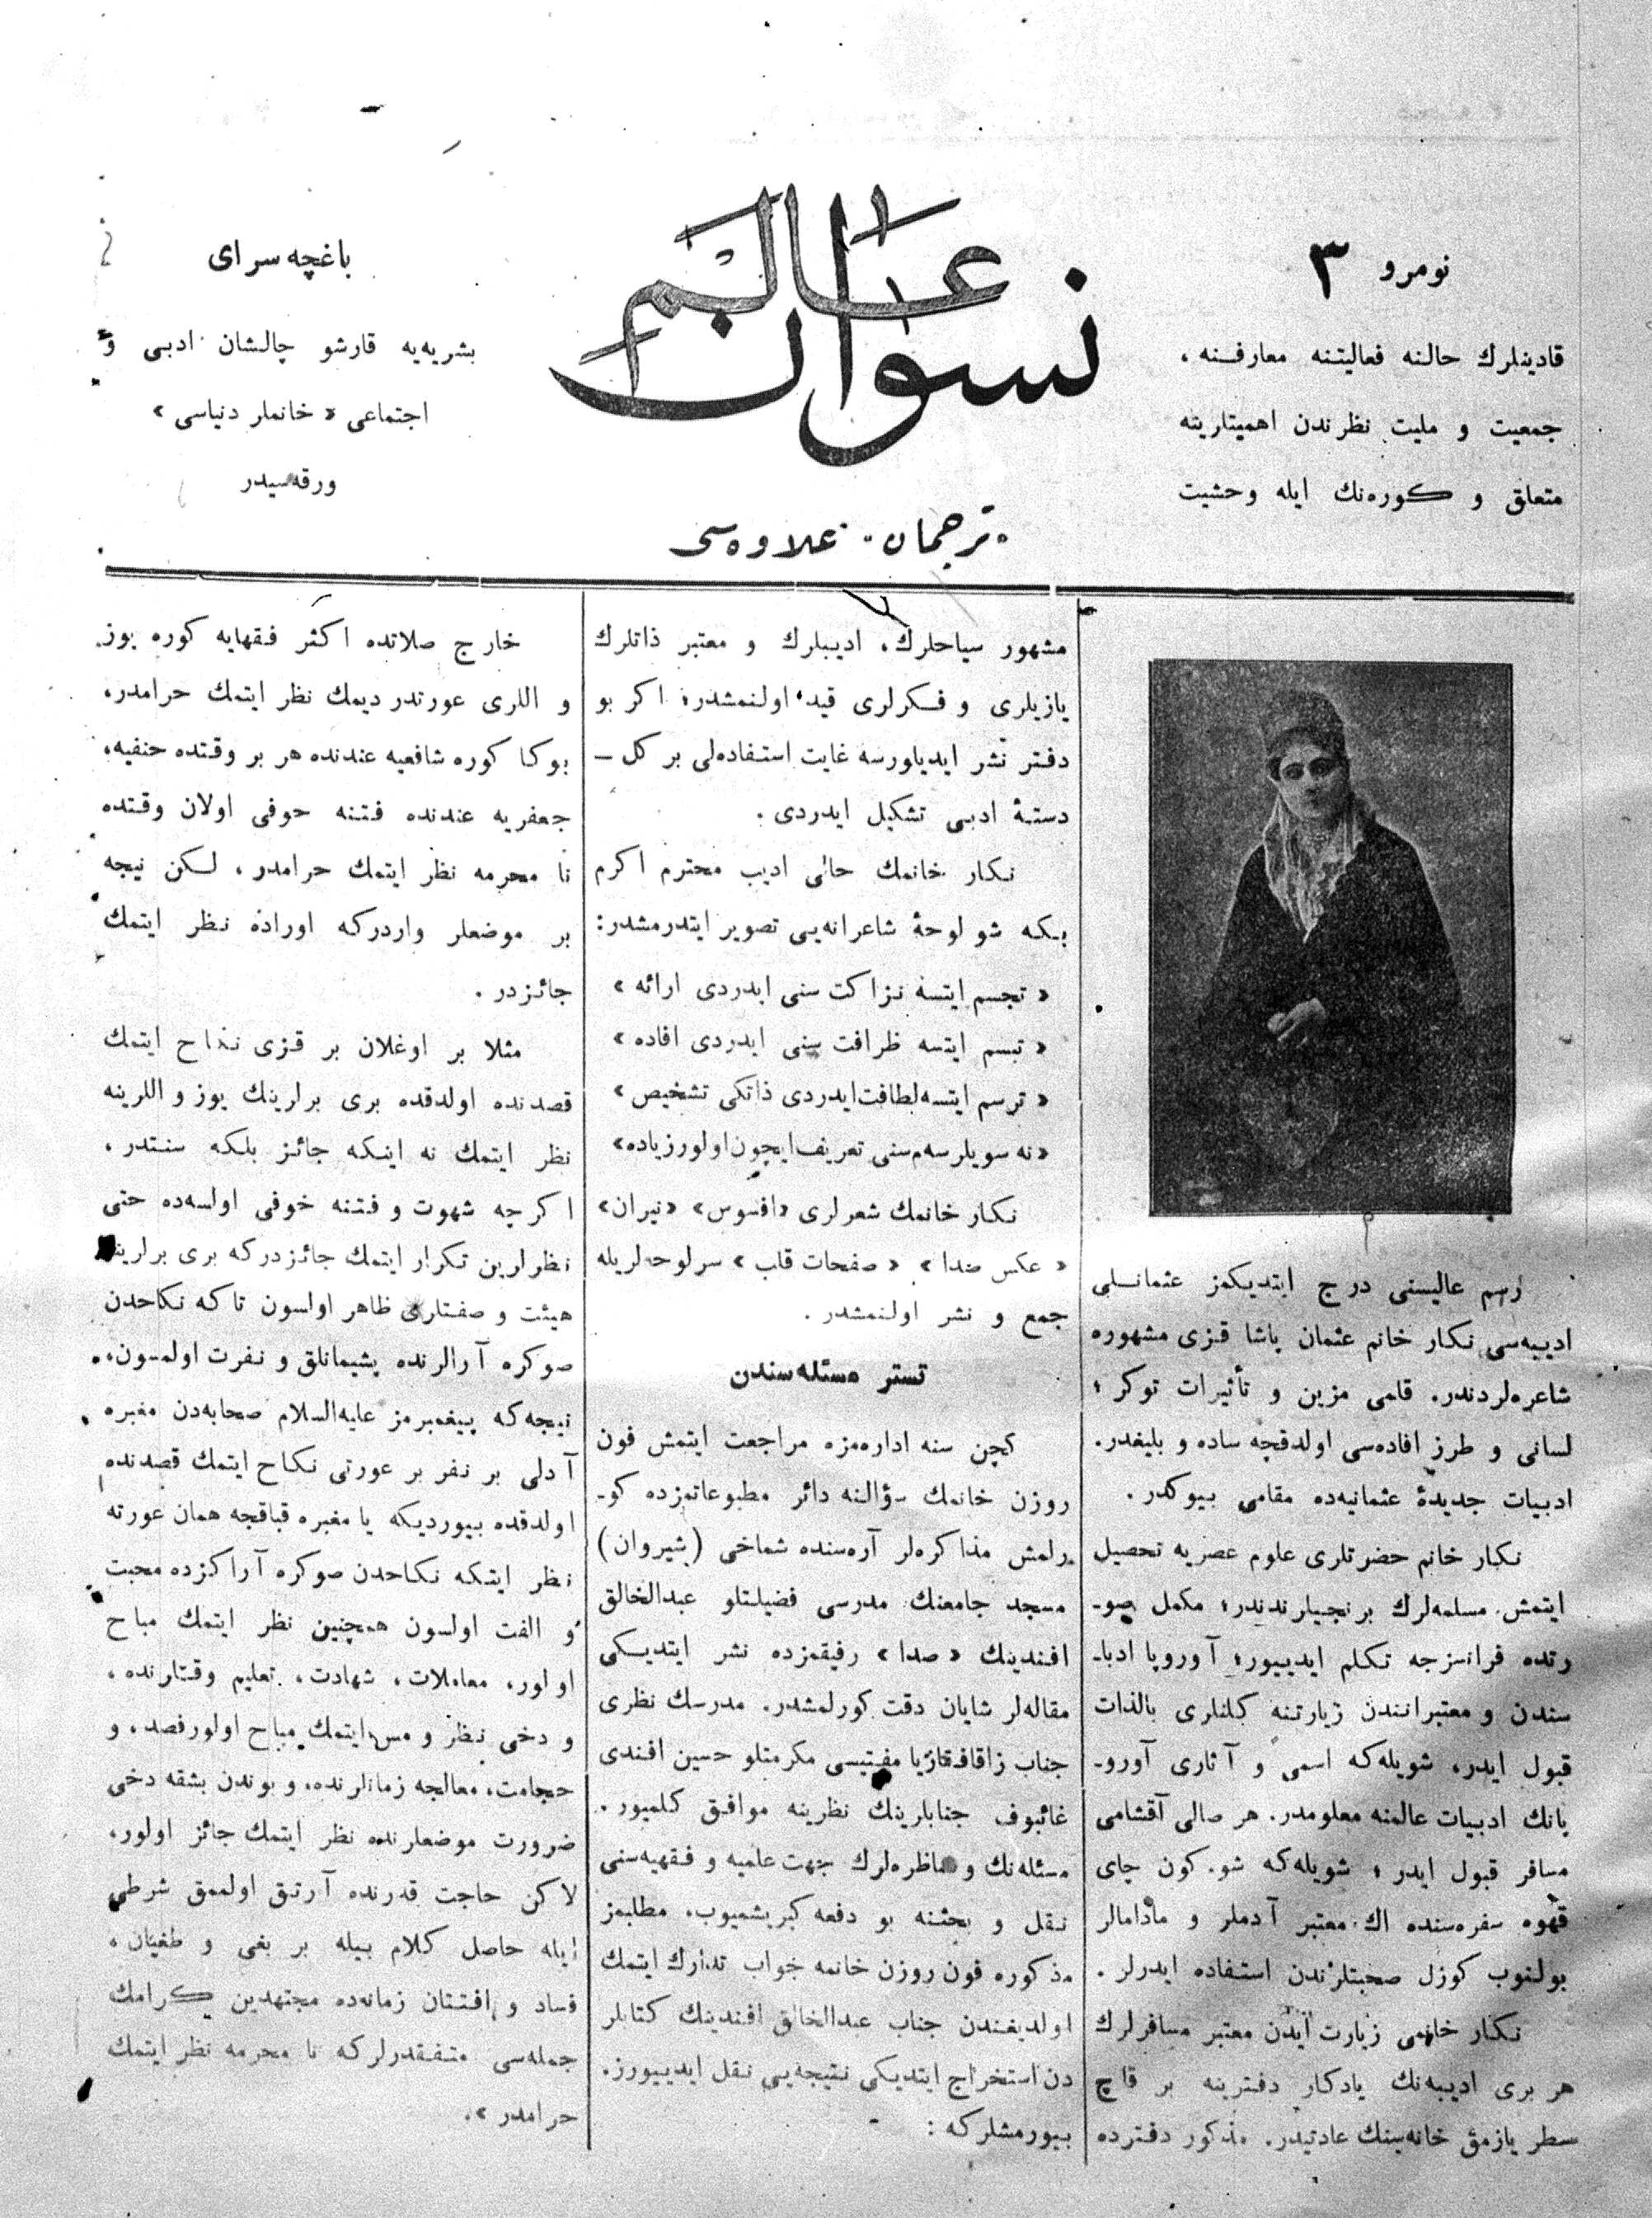 نومرو ٣
قادینلرك حالنه فعالیتنه معارفنه ،
جمعیت و ملیت نظرندن اهمیتارینه
متعلق و كوره‌نك ایله وحشیت
عالم نسوان
ترجمان علاوه‌سی
باغچه سرای
بشریه‌یه قارشو چالشان ادبی و
اجتماعی « خانملر دنیاسی »
ورقه‌سیدر
رسم عالیسنی درج ایتدیكمز عثمانلی
ادیبه‌سی نكار خانم عثمان پاشا قزی مشهوره
شاعره‌لردندر. قلمی مزین و تأثیرات توكر ؛
لسانی و طرز افاده‌سی اولدقچه ساده و بلیغدر.
ادبیات جدیدهٔ عثمانیه‌ده مقامی بیوكدر .
نكار خانم حضرتلری علوم عصریه تحصیل
ایتمش مسلمه‌لرك برنجیلرندندر؛ مكمل صو-
رتده فرانسزجه تكلم ایدییور؛ آوروپا ادبا-
سندن و معتبرانندن زیارتنه كلنلری بالذات
قبول ایدر، شویله‌كه اسمی و آثاری آورو-
پانك ادبیات عالمنه معلومدر. هر صالی آقشامی
مسافر قبول ایدر ؛ شویله‌كه شو كون چای
قهوه سفره‌سنده اك معتبر آدملر و مادامالر
بولنوب كوزل صحبتلرندن استفاده ایدرلر .
نكار خانمی زیارت ایدن معتبر مسافرلرك
هر بری ادیبه‌نك یادكار دفترینه بر قاچ
سطر یازمق خانه‌سینك عادتیدر. مذكور دفترده
مشهور سیاحلرك، ادیبلرك و معتبر ذاتلرك
یازیلری و فكرلری قید اولنمشدر؛ اكر بو
دفتر نشر ایدیلورسه غایت استفاده‌لی بر كل –
دستهٔ ادبی تشكیل ایدردی .
نكار خانمك حالی ادیب محترم اكرم
بكه شو لوحهٔ شاعرانه‌یی تصویر ایتدرمشدر:
« تجسم ایتسه نزاكت سنی ایدردی ارائه »
« تبسم ایتسه ظرافت سنی ایدردی افاده »
« ترسم ایتسه لطافت ایدردی ذاتكی تشخیص »
« نه سویلرسه‌م سنی تعریف ایچون اولور زیاده»
نكار خانمك شعرلری «افسوس» «نیران»
« عكس صدا » « صفحات قلب » سرلوحه‌لریله
جمع و نشر اولنمشدر .
تستر مسئله‌سندن
كچن سنه اداره‌مزه مراجعت ایتمش فون
روزن خانمك سؤالنه دائر مطبوعاتمزده كو-
رلمش مذاكره‌لر آره‌سنده شماخی (شیروان)
مسجد جامعنك مدرسی فضیلتلو عبدالخالق
افندینك « صدا » رفیقمزده نشر ایتدیكی
مقاله‌لر شایان دقت كورلمشدر. مدرسك نظری
جناب زاقافقازیا مفتیسی مكرمتلو حسین افندی
غائبوف جنابلرینك نظرینه موافق كلمیور.
مسئله‌نك و مناظره‌لرك جهت علمیه و فقهیه‌سنی
نقل و بحثنه بو دفعه كیریشمیوب، مطلبمز
مذكوره فون روزن خانمه جواب تدارك ایتمك
اولدیغندن جناب عبدالخالق افندینك كتابلر
دن استخراج ایتدیكی نتیجه‌یی نقل ایدییورز.
بیورمشلركه :
خارج صلاتده اكثر فقهایه كوره یوز
و اللری عورتدر دیمك نظر ایتمك حرامدر،
بوكا كوره شافعیه عندنده هر بر وقتده حنفیه،
جعفریه عندنده فتنه خوفی اولان وقتده
نا محرمه نظر ایتمك حرامدر ، لكن نیجه
بر موضعلر واردركه اوراده نظر ایتمك
جائزدر .
مثلا بر اوغلان بر قزی نكاح ایتمك
قصدنده اولدقده بری برلرینك یوز و اللرینه
نظر ایتمك نه اینكه جائز بلكه سنتدر ،
اكرچه شهوت و فتنه خوفی اولسه‌ده حتی
نظرلرین تكرار ایتمك جائزدركه بری برلرینه
هیئت و صفتلری ظاهر اولسون تا كه نكاحدن
صوكره آرالرنده پشیمانلق و نفرت اولمسون،
نیجه‌كه پیغمبرمز علیه‌السلام صحابه‌دن مغیره
آدلی بر نفر بر عورتی نكاح ایتمك قصدنده
اولدقده بیوردیكه یا مغیره قباقجه همان عورته
نظر ایتكه نكاحدن صوكره آراكزده محبت
و الفت اولسون همچنین نظر ایتمك مباح
اولور، معاملات، شهادت، تعلیم وقتلرنده،
و دخی نظر و مس ایتمك مباح اولور فصد، و
حجامت، معالجه زمانلرنده، و بوندن بشقه دخی
ضرورت موضعلرنده نظر ایتمك جائز اولور،
لاكن حاجت قدرنده آرتق اولممق شرطی
ایله حاصل كلام بیله بر بغی و طغیان ،
فساد و افتتان زمانه‌ده مجتهدین كرامك
جمله‌سی متفقدرلركه نا محرمه نظر ایتمك
حرامدر ».